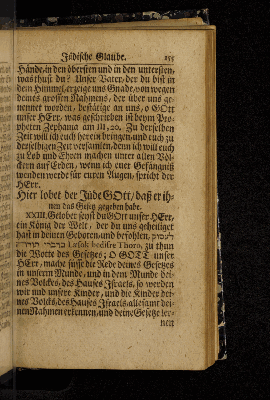 Jüdische Glaube. 255
Hände, in den öbersten und in den untersten,
was thust du? Unser Vater, der du bist in
dem Himmel, erzeige uns Gnade, von wegen
deines grossen Nahmens, der über uns ge-
nennet worden, bestätige an uns, o GOtt
unser HErr, was geschrieben ist beym Pro-
pheten Zephania am III, 20. Zu derselben
Zeit will ich euch herein bringen, und euch zu
derselbigen Zeit versamlen, denn ich will euch
zu Lob und Ehren machen unter allen Völ-
ckern auf Erden, wenn ich euer Gefängniß
wenden werde für euren Augen, spricht der
HErr.
Hier lobet der Jüde GOtt, daß er ih-
nen das Gesetz gegeben habe.
XXIII. Gelobet seyst du GOtt unser HErr,
ein König der Welt, der du uns geheiliget
hast in deinen Geboten, und befohlen,
Lasok bedifre Thoro, zu thun
die Worte des Gesetzes; O GOTT unser
HErr, mache süsse die Rede deines Gesetzes
in unserm Munde, und in dem Munde dei-
nes Volckes, des Hauses Israels, so werden
wir und unsere Kinder, und die Kinder dei-
nes Volcks, des Hauses Israels, allesamt dei-
nen Nahmen erkennen, und deine Gesetze ler-
nen